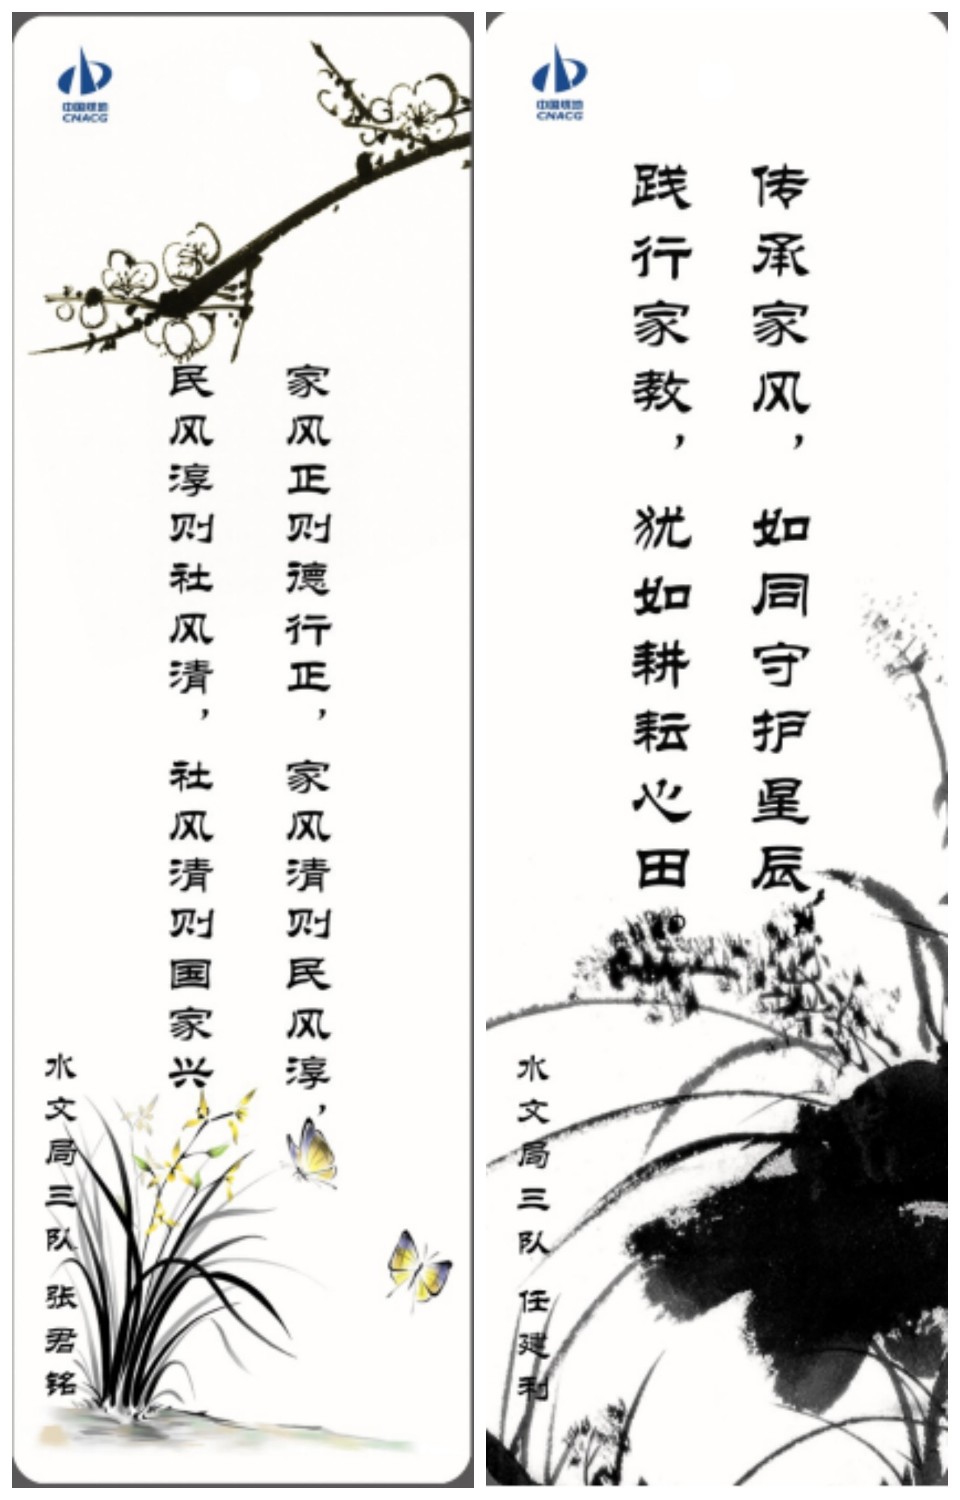 中国煤地
CNACG
家风正则德行正，家风清则民风淳，
民风淳则社风清，社风清则国家兴
水文局三队 张君铭
中国煤地
CNACG
传承家风，如同守护星辰，
践行家教，犹如耕耘心田。
水文局三队 任建利